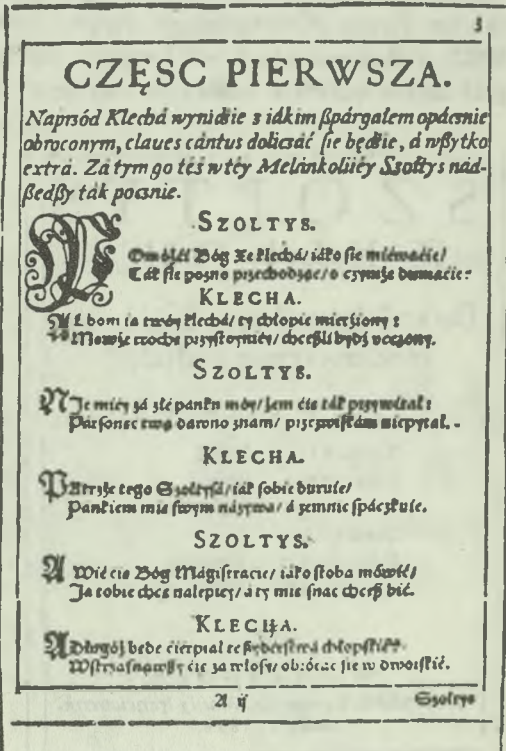 3
CZĘSC PIERWSZA.
Naprzód Klechá wynidźie z iákim ßpárgałem opácznie
obroconym, claves cántus doliczáć sie będźie, á wßytko
extrá. Zá tym go też w tey Melánkoliiey Szołtys nád-
ßedßy ták pocznie.
SZOLTYS.
Bóg Xe klechá/ iáko sie miewaćie/
Ták sie pozno przechodząc/ o czymże dumaćie?
KLECHA.
A Lbom ia twóy klechá/ ty chłopie mierźiony?
Mowże trochę przystoyniey/ chceßli bydź uczony.
SZOLTYS.
NIe miey zá złé pankn móy/ żem ćie ták przywitał:
Pár sonec twą dawno znam/ nie pytał.
KLECHA.
PAtrzże tego Szołtysá/ iák sobie buruie/
Pankiem mie swym názywa/ á zemnie spáczkuie.
SZOLTYS.
A Wié cie Bóg Mágistracie/ iáko stoba mówić/
Ja tobie chcę nalepiey/ á ty mie snac chceß bić.
KLECHA.
A Długóż bede ćierpiał te
ćie zá włosy obrócac sie w dworskié.
A ij Szołtys